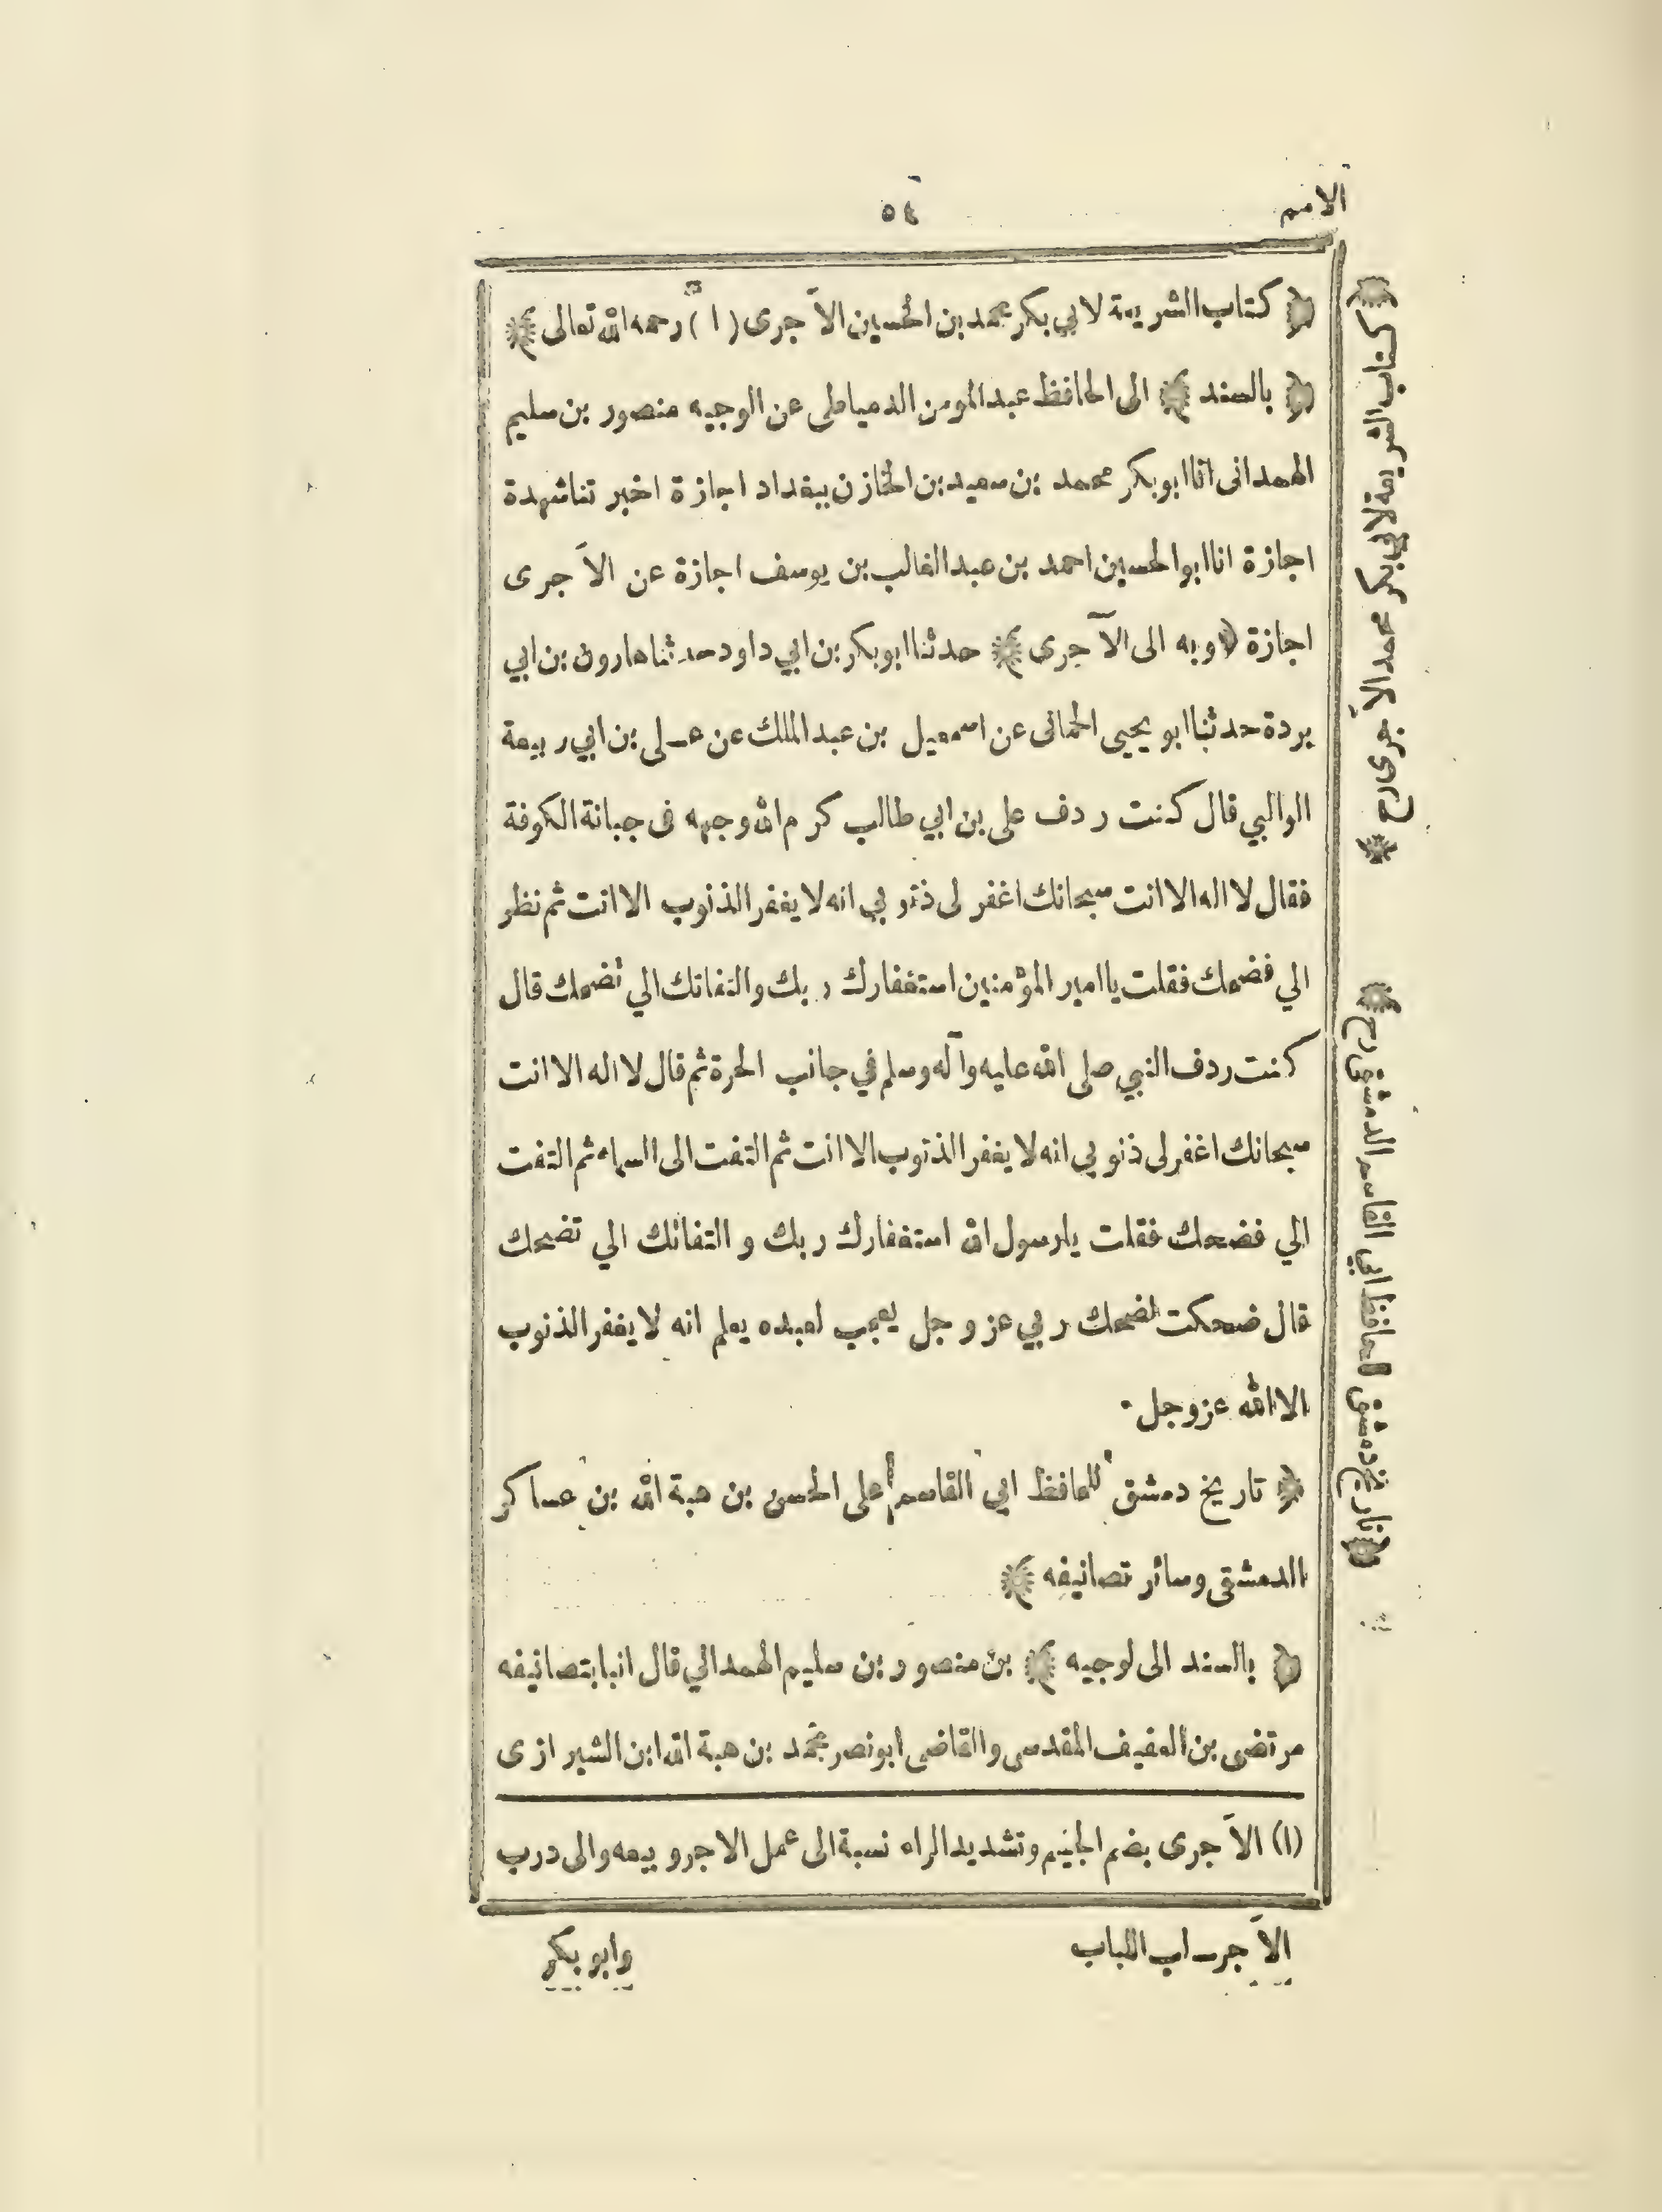 الامم
٥٤
﴿ كتاب الشريعة لابي بكر محمد بن الحسين الآجرى (١) رحمه الله تعالى ﴾
﴿ بالسند ﴾ الى الحافظ عبد المومن الدمياطى عن الوجيه منصور بن سليم
الهمدانى انا ابو بكر محمد بن سعيد بن الخازن ببغداد اجازة اخبرتنا شهدة
اجازة انا ابو الحسين احمد بن عبد الغالب بن يوسف اجازة عن الآجرى
اجازة ﴿ وبه الى الآجرى ﴾ حدثنا ابو بكر بن ابي داود حدثنا هارون بن ابي
بردة حدثنا ابو يحيى الحمانى عن اسمعيل بن عبد الملك عن على بن ابي ربيعة
الوالبي قال كنت ردف على بن ابي طالب كرم الله وجهه فى جبانة الكوفة
فقال لا اله الا انت سبحانك اغفر لى ذنوبي انه لا يغفر الذنوب الا انت ثم نظر
الي فضحك فقلت يا امير المؤمنين استغفارك ربك والتفاتك الي تضحك قال
كنت ردف النبي صلى الله عليه وآله وسلم في جانب الحرة ثم قال لا اله الا انت
سبحانك اغفر لى ذنوبي انه لا يغفر الذنوب الا انت ثم التفت الى السماء ثم التفت
الي فضحك فقلت يارسول الله استغفارك ربك و التفاتك الي تضحك
قال ضحكت لضحك ربي عز و جل يعجب لعبده يعلم انه لا يغفر الذنوب
الا الله عز وجل ٠
﴿ تاريخ دمشق للحافظ ابي القاسم على الحسن بن هبة الله بن عساكر
الدمشقى وسائر تصانيفه ﴾
﴿ بالسند الى لوجيه ﴾ بن منصور بن سليم الهمدالي قال انبا بتصانيفه
مرتضى بن العفيف المقدسى والقاضى ابو نصر محمد بن هبة الله ابن الشيرازى
(١) الآجرى بضم الجيم وتشديد الراء نسبة الى عمل الاجر و بيعه والى درب
الآجر ــ اب اللباب
وابو بكر
﴿ كتاب الشريعة لابي بكر محمد الآجرى رح ﴾
﴿ تاريخ دمشق للحافظ ابي القاسم الدمشقى رح ﴾